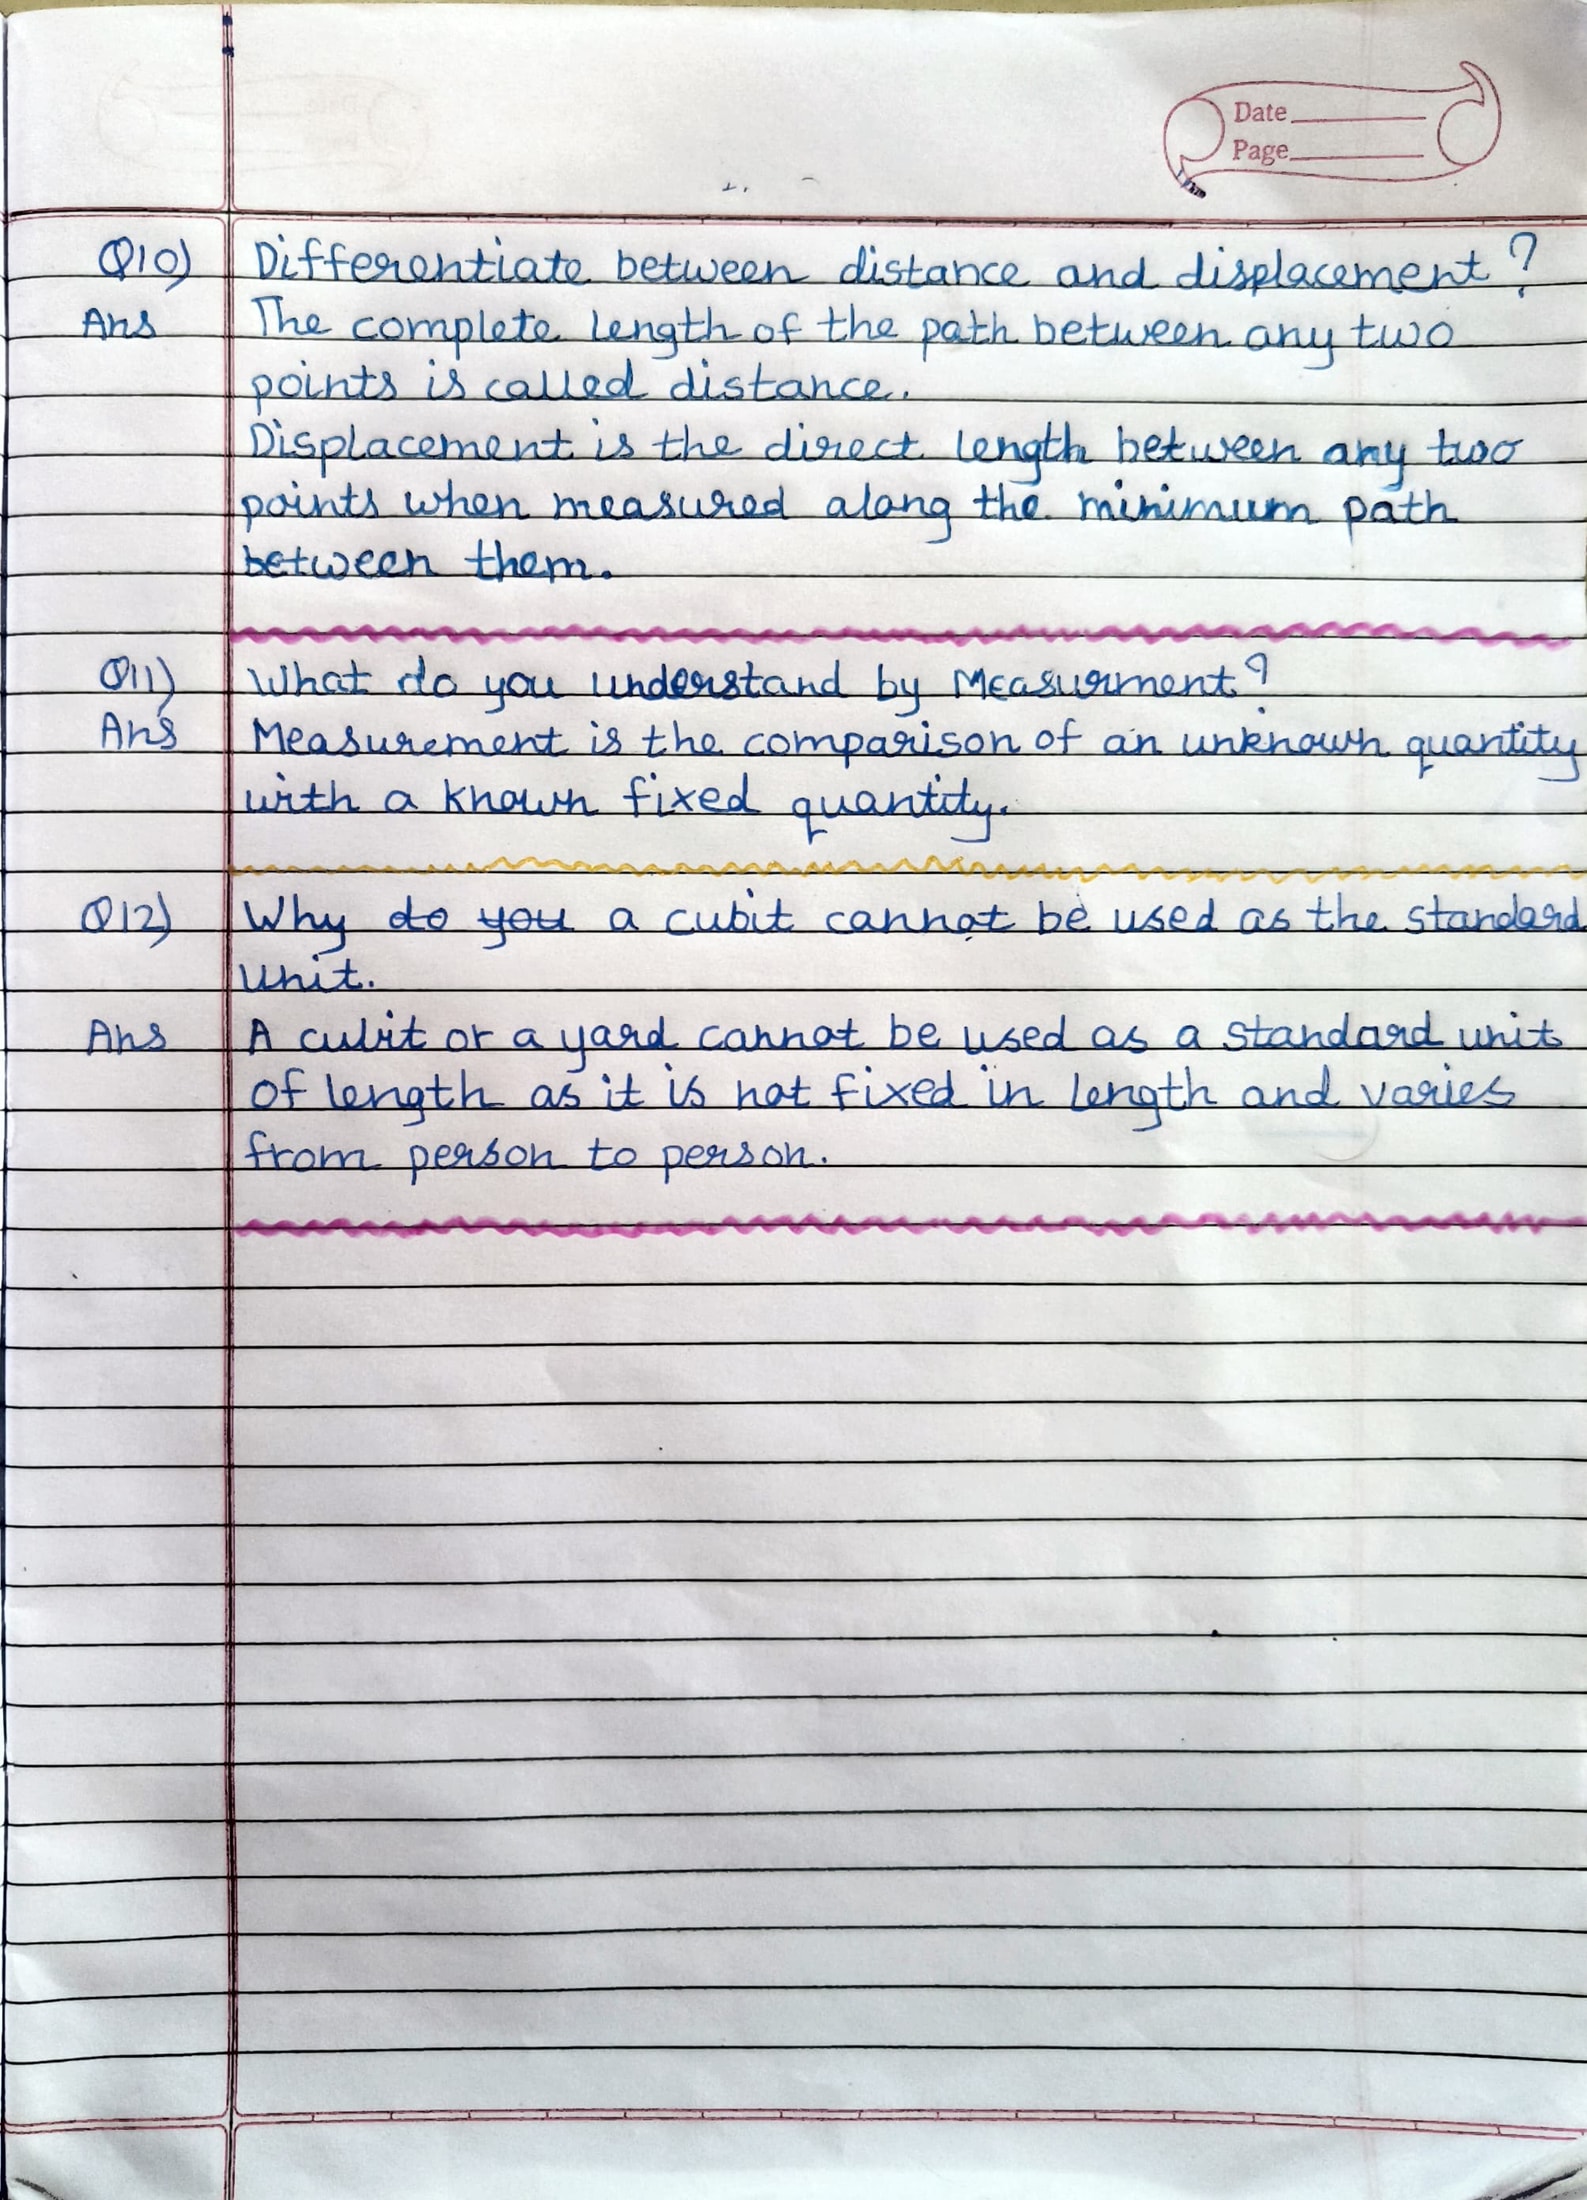 Date
Page
Q10) Differentiate between distance and displacement?
Ans The complete length of the path between any two
points is called distance.
Displacement is the direct length between any two
points when measured along the minimum path
between them.
Q11) What do you understand by Measurment?
Ans Measurement is the comparison of an unknown quantity
with a known fixed quantity.
Q12) Why do you a cubit cannot be used as the standard
unit.
Ans A cubit or a yard cannot be used as a standard unit
of length as it is not fixed in length and varies
from person to person.